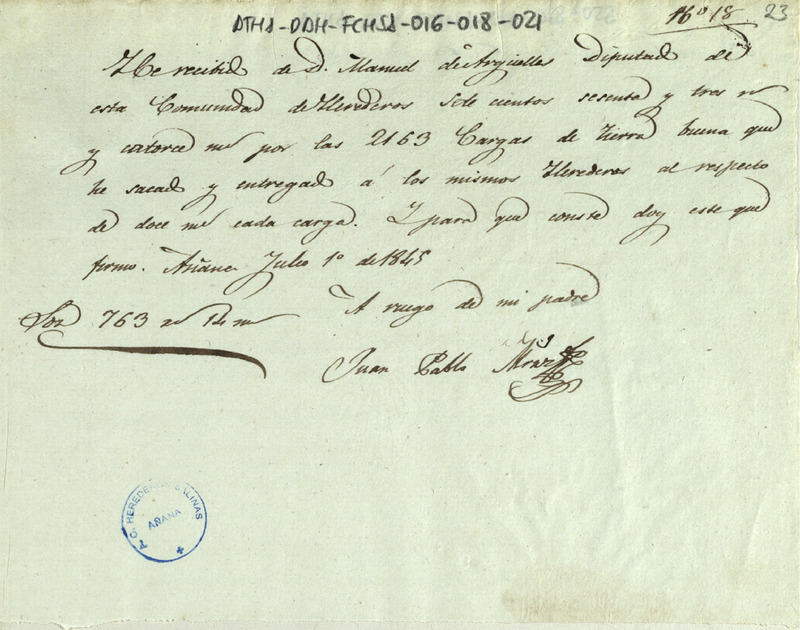 ATHA-DAH-FCHSA-016-018-021
Nº 18 23
He recibido de D. Manuel de Argüelles Diputado de
esta Comunidad de Herederos Sete cientos sesenta y tres rs
y catorce ms por las 2163 Cargas de tierra buena que
he sacado y entregado á los mismos Herederos al respecto
de doce ms cada carga. Y para que conste doy este que
firmo. Añana Julio 1º de 1845
Son 763 rs 14 ms
A ruego de mi padre
Juan Pablo
A. C. HEREDEROS SALINAS
AÑANA